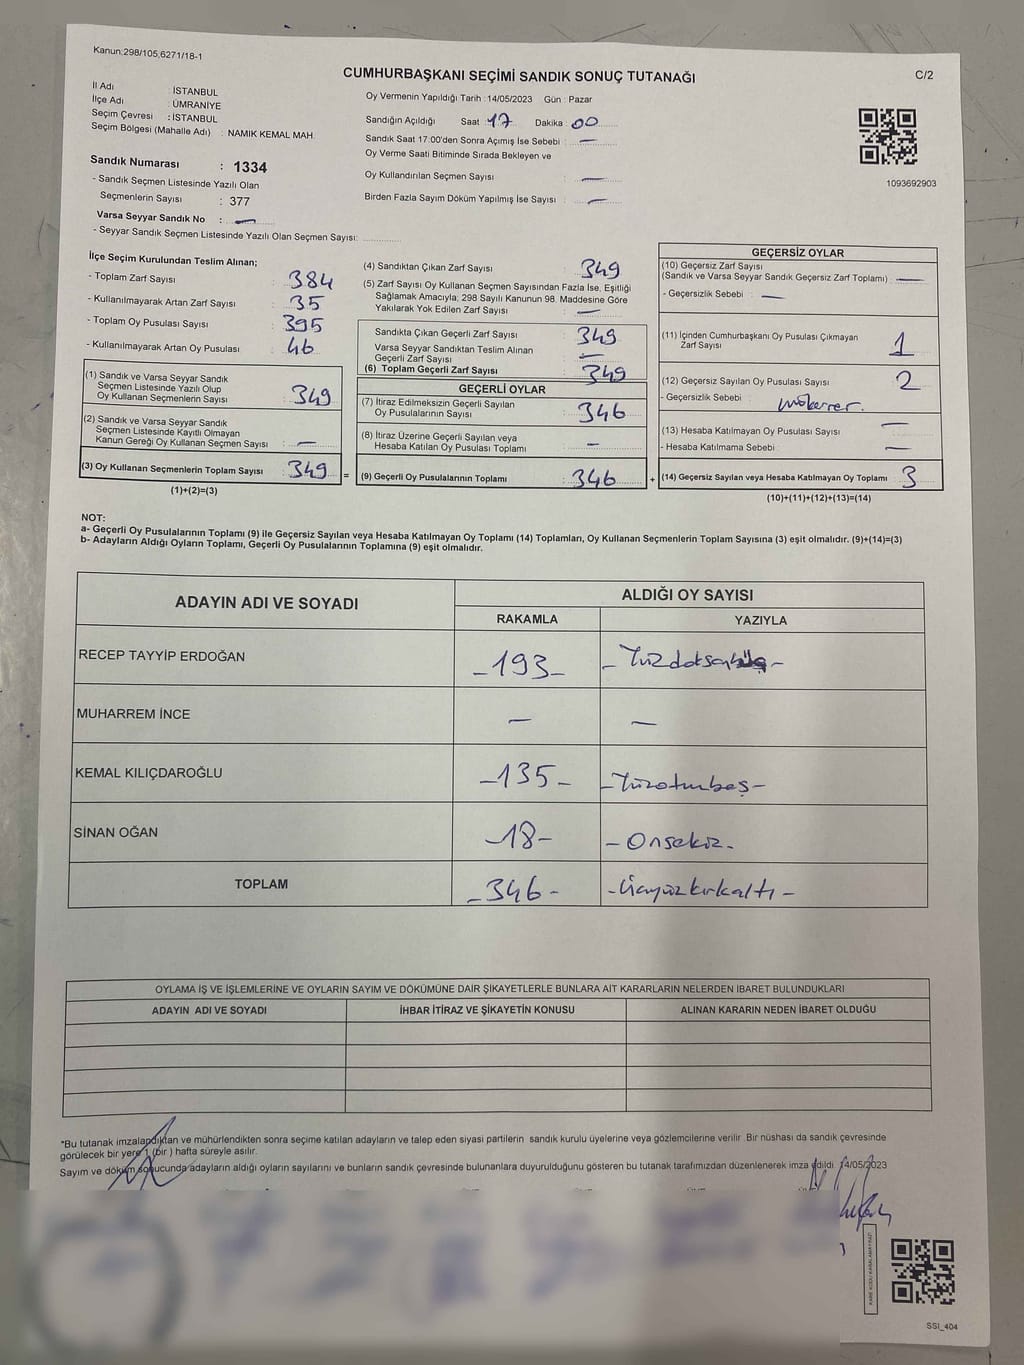 Kanun:298/105,6271/18-1
C/2
CUMHURBAŞKANI SEÇİMİ SANDIK SONUÇ TUTANAĞI
İl Adı : İSTANBUL
İlçe Adı : ÜMRANİYE
Seçim Çevresi : İSTANBUL
Seçim Bölgesi (Mahalle Adı) : NAMIK KEMAL MAH.
Sandık Numarası : 1334
- Sandık Seçmen Listesinde Yazılı Olan
Seçmenlerin Sayısı : 377
Varsa Seyyar Sandık No : —
- Seyyar Sandık Seçmen Listesinde Yazılı Olan Seçmen Sayısı:
Oy Vermenin Yapıldığı Tarih : 14/05/2023 Gün : Pazar
Sandığın Açıldığı Saat 17 Dakika : 00
Sandık Saat 17:00'den Sonra Açımış İse Sebebi : —
Oy Verme Saati Bitiminde Sırada Bekleyen ve
Oy Kullandırılan Seçmen Sayısı : —
Birden Fazla Sayım Döküm Yapılmış İse Sayısı : —
1093692903
İlçe Seçim Kurulundan Teslim Alınan;
- Toplam Zarf Sayısı : 384
- Kullanılmayarak Artan Zarf Sayısı : 35
- Toplam Oy Pusulası Sayısı : 395
- Kullanılmayarak Artan Oy Pusulası : 46
(1) Sandık ve Varsa Seyyar Sandık
Seçmen Listesinde Yazılı Olup
Oy Kullanan Seçmenlerin Sayısı : 349
(2) Sandık ve Varsa Seyyar Sandık
Seçmen Listesinde Kayıtlı Olmayan
Kanun Gereği Oy Kullanan Seçmen Sayısı : —
(3) Oy Kullanan Seçmenlerin Toplam Sayısı : 349 =
(1)+(2)=(3)
(4) Sandıktan Çıkan Zarf Sayısı : 349
(5) Zarf Sayısı Oy Kullanan Seçmen Sayısından Fazla İse, Eşitliği
Sağlamak Amacıyla; 298 Sayılı Kanunun 98. Maddesine Göre
Yakılarak Yok Edilen Zarf Sayısı : —
Sandıkta Çıkan Geçerli Zarf Sayısı : 349
Varsa Seyyar Sandıktan Teslim Alınan
Geçerli Zarf Sayısı : —
(6) Toplam Geçerli Zarf Sayısı : 349
GEÇERLİ OYLAR
(7) İtiraz Edilmeksizin Geçerli Sayılan
Oy Pusulalarının Sayısı : 346
(8) İtiraz Üzerine Geçerli Sayılan veya
Hesaba Katılan Oy Pusulası Toplamı : —
(9) Geçerli Oy Pusulalarının Toplamı : 346 +
GEÇERSİZ OYLAR
(10) Geçersiz Zarf Sayısı
(Sandık ve Varsa Seyyar Sandık Geçersiz Zarf Toplamı) : —
- Geçersizlik Sebebi : —
(11) İçinden Cumhurbaşkanı Oy Pusulası Çıkmayan
Zarf Sayısı : 1
(12) Geçersiz Sayılan Oy Pusulası Sayısı : 2
- Geçersizlik Sebebi : mükerrer.
(13) Hesaba Katılmayan Oy Pusulası Sayısı : —
- Hesaba Katılmama Sebebi : —
(14) Geçersiz Sayılan veya Hesaba Katılmayan Oy Toplamı : 3
(10)+(11)+(12)+(13)=(14)
NOT:
a- Geçerli Oy Pusulalarının Toplamı (9) ile Geçersiz Sayılan veya Hesaba Katılmayan Oy Toplamı (14) Toplamları, Oy Kullanan Seçmenlerin Toplam Sayısına (3) eşit olmalıdır. (9)+(14)=(3)
b- Adayların Aldığı Oyların Toplamı, Geçerli Oy Pusulalarının Toplamına (9) eşit olmalıdır.
ADAYIN ADI VE SOYADI ALDIĞI OY SAYISI
RAKAMLA YAZIYLA
RECEP TAYYİP ERDOĞAN -193- -Yüzdoksanüç-
MUHARREM İNCE — —
KEMAL KILIÇDAROĞLU -135- -Yüzotuzbeş-
SİNAN OĞAN -18- -Onsekiz-
TOPLAM -346- -Üçyüzkırkaltı-
OYLAMA İŞ VE İŞLEMLERİNE VE OYLARIN SAYIM VE DÖKÜMÜNE DAİR ŞİKAYETLERLE BUNLARA AİT KARARLARIN NELERDEN İBARET BULUNDUKLARI
ADAYIN ADI VE SOYADI İHBAR İTİRAZ VE ŞİKAYETİN KONUSU ALINAN KARARIN NEDEN İBARET OLDUĞU
*Bu tutanak imzalandıktan ve mühürlendikten sonra seçime katılan adayların ve talep eden siyasi partilerin sandık kurulu üyelerine veya gözlemcilerine verilir. Bir nüshası da sandık çevresinde
görülecek bir yere 1 (bir ) hafta süreyle asılır.
Sayım ve döküm sonucunda adayların aldığı oyların sayılarını ve bunların sandık çevresinde bulunanlara duyurulduğunu gösteren bu tutanak tarafımızdan düzenlenerek imza edildi. 14/05/2023
SSI_404